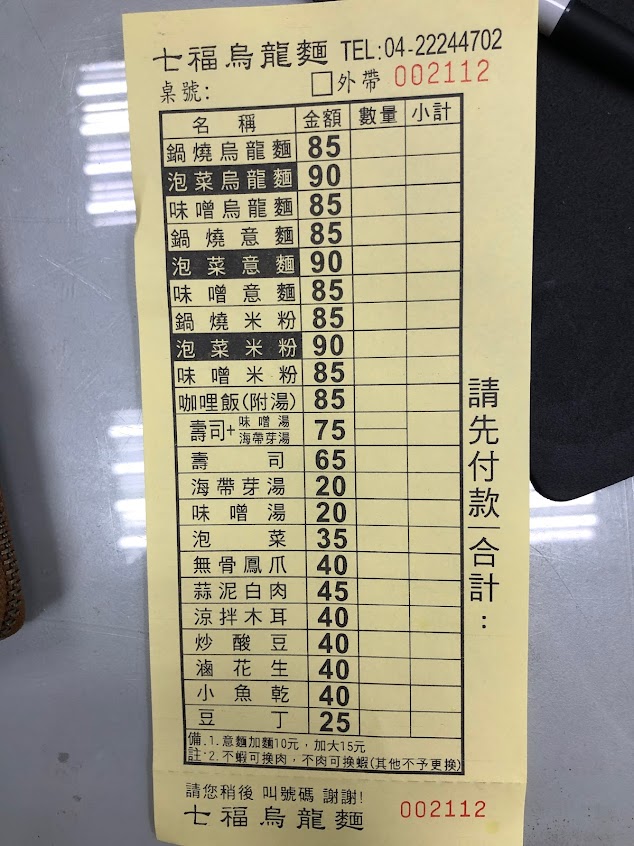 七福烏龍麵 TEL:04-22244702
桌號: □外帶 002112
名稱 金額 數量 小計
鍋燒烏龍麵 85
泡菜烏龍麵 90
味噌烏龍麵 85
鍋燒意麵 85
泡菜意麵 90
味噌意麵 85
鍋燒米粉 85
泡菜米粉 90
味噌米粉 85
咖哩飯(附湯) 85
壽司+味噌湯 海帶芽湯 75
壽司 65
海帶芽湯 20
味噌湯 20
泡菜 35
無骨鳳爪 40
蒜泥白肉 45
涼拌木耳 40
炒酸豆 40
滷花生 40
小魚乾 40
豆丁 25
備註:1.意麵加麵10元,加大15元
2.不蝦可換肉,不肉可換蝦(其他不予更換)
請先付款 合計:
請您稍後 叫號碼 謝謝!
七福烏龍麵 002112